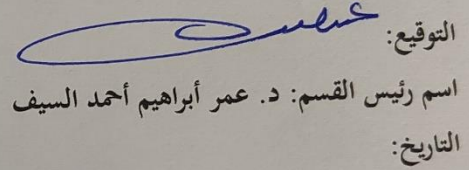 التوقيع:
اسم رئيس القسم: د. عمر أبراهيم أحمد السيف
التاريخ: